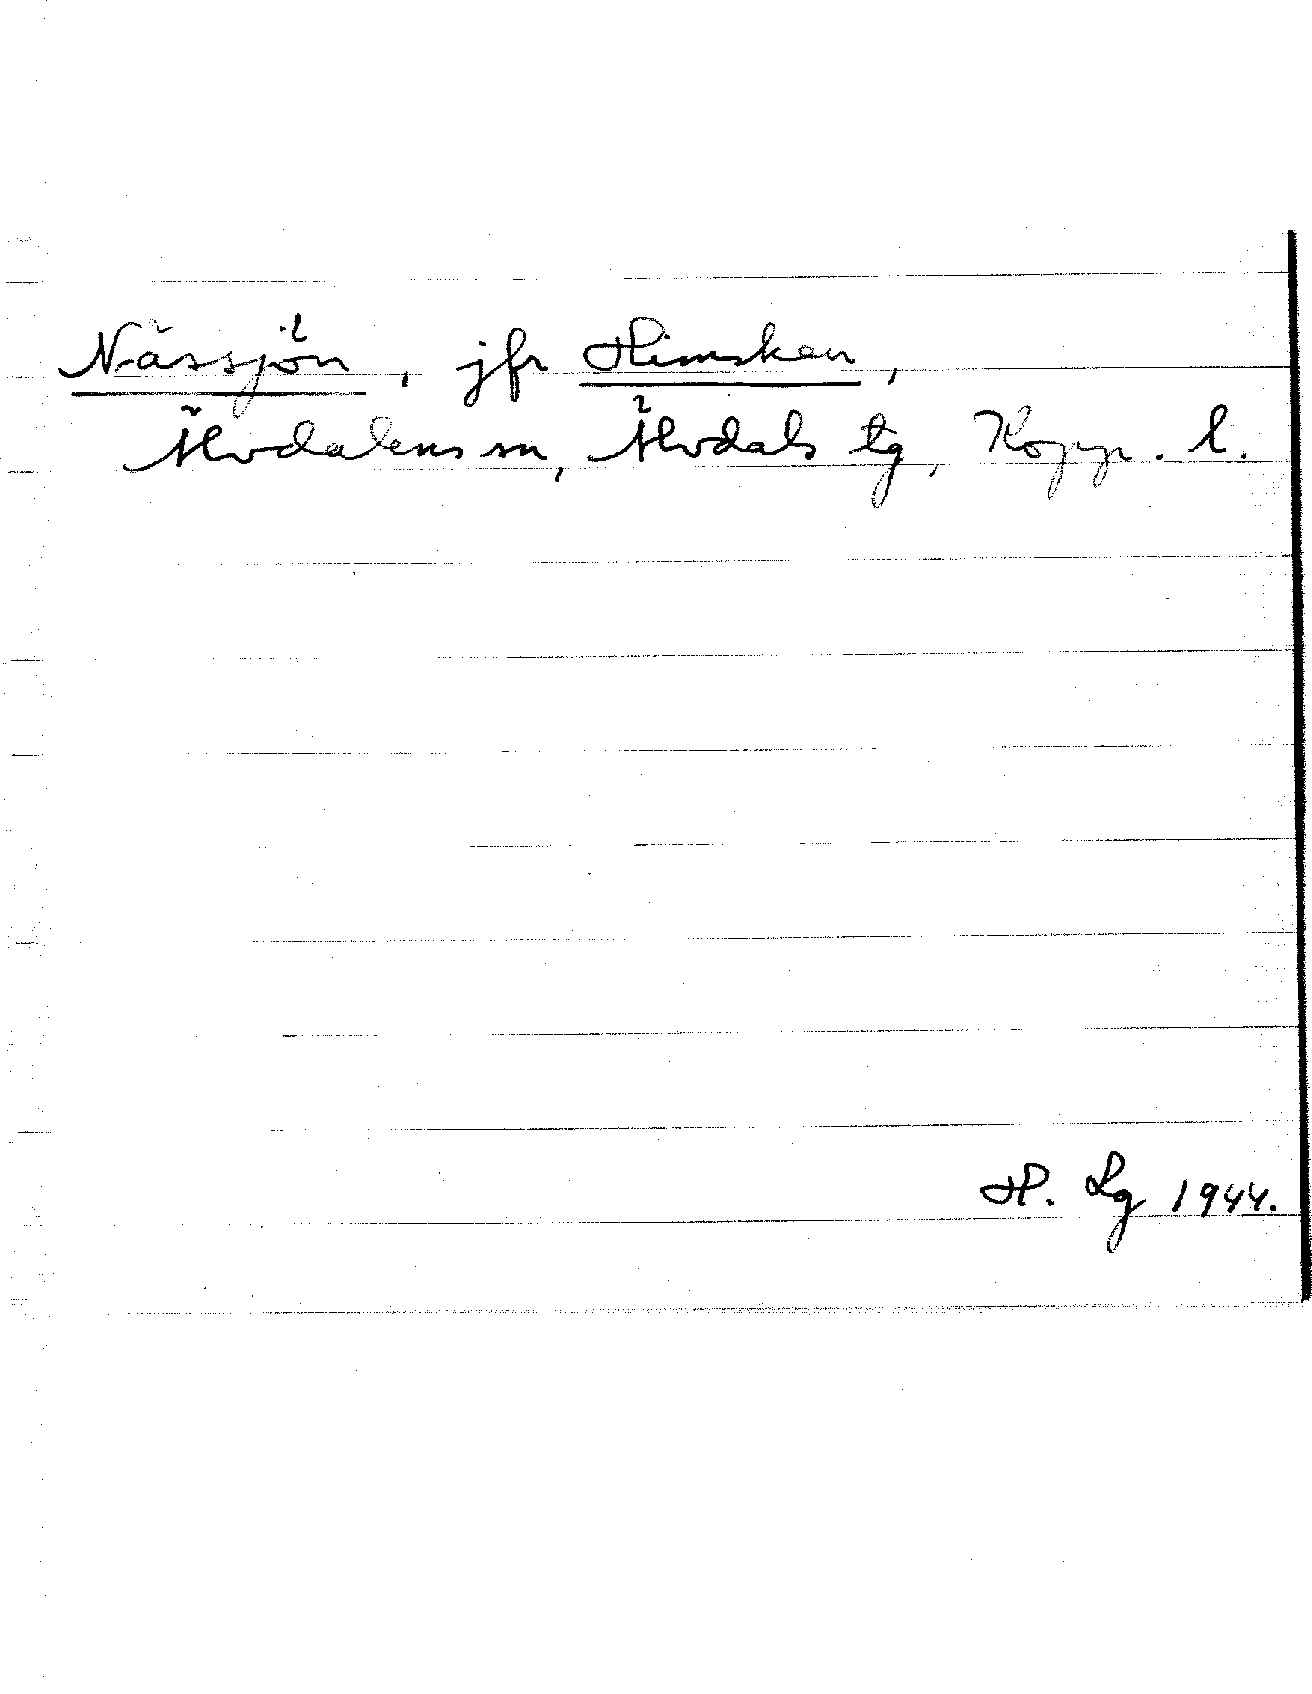 Nässjön, jfr Himsken,
Älvdalens sn, Älvdals tg, Kopp. l.
H. Lg 1944.